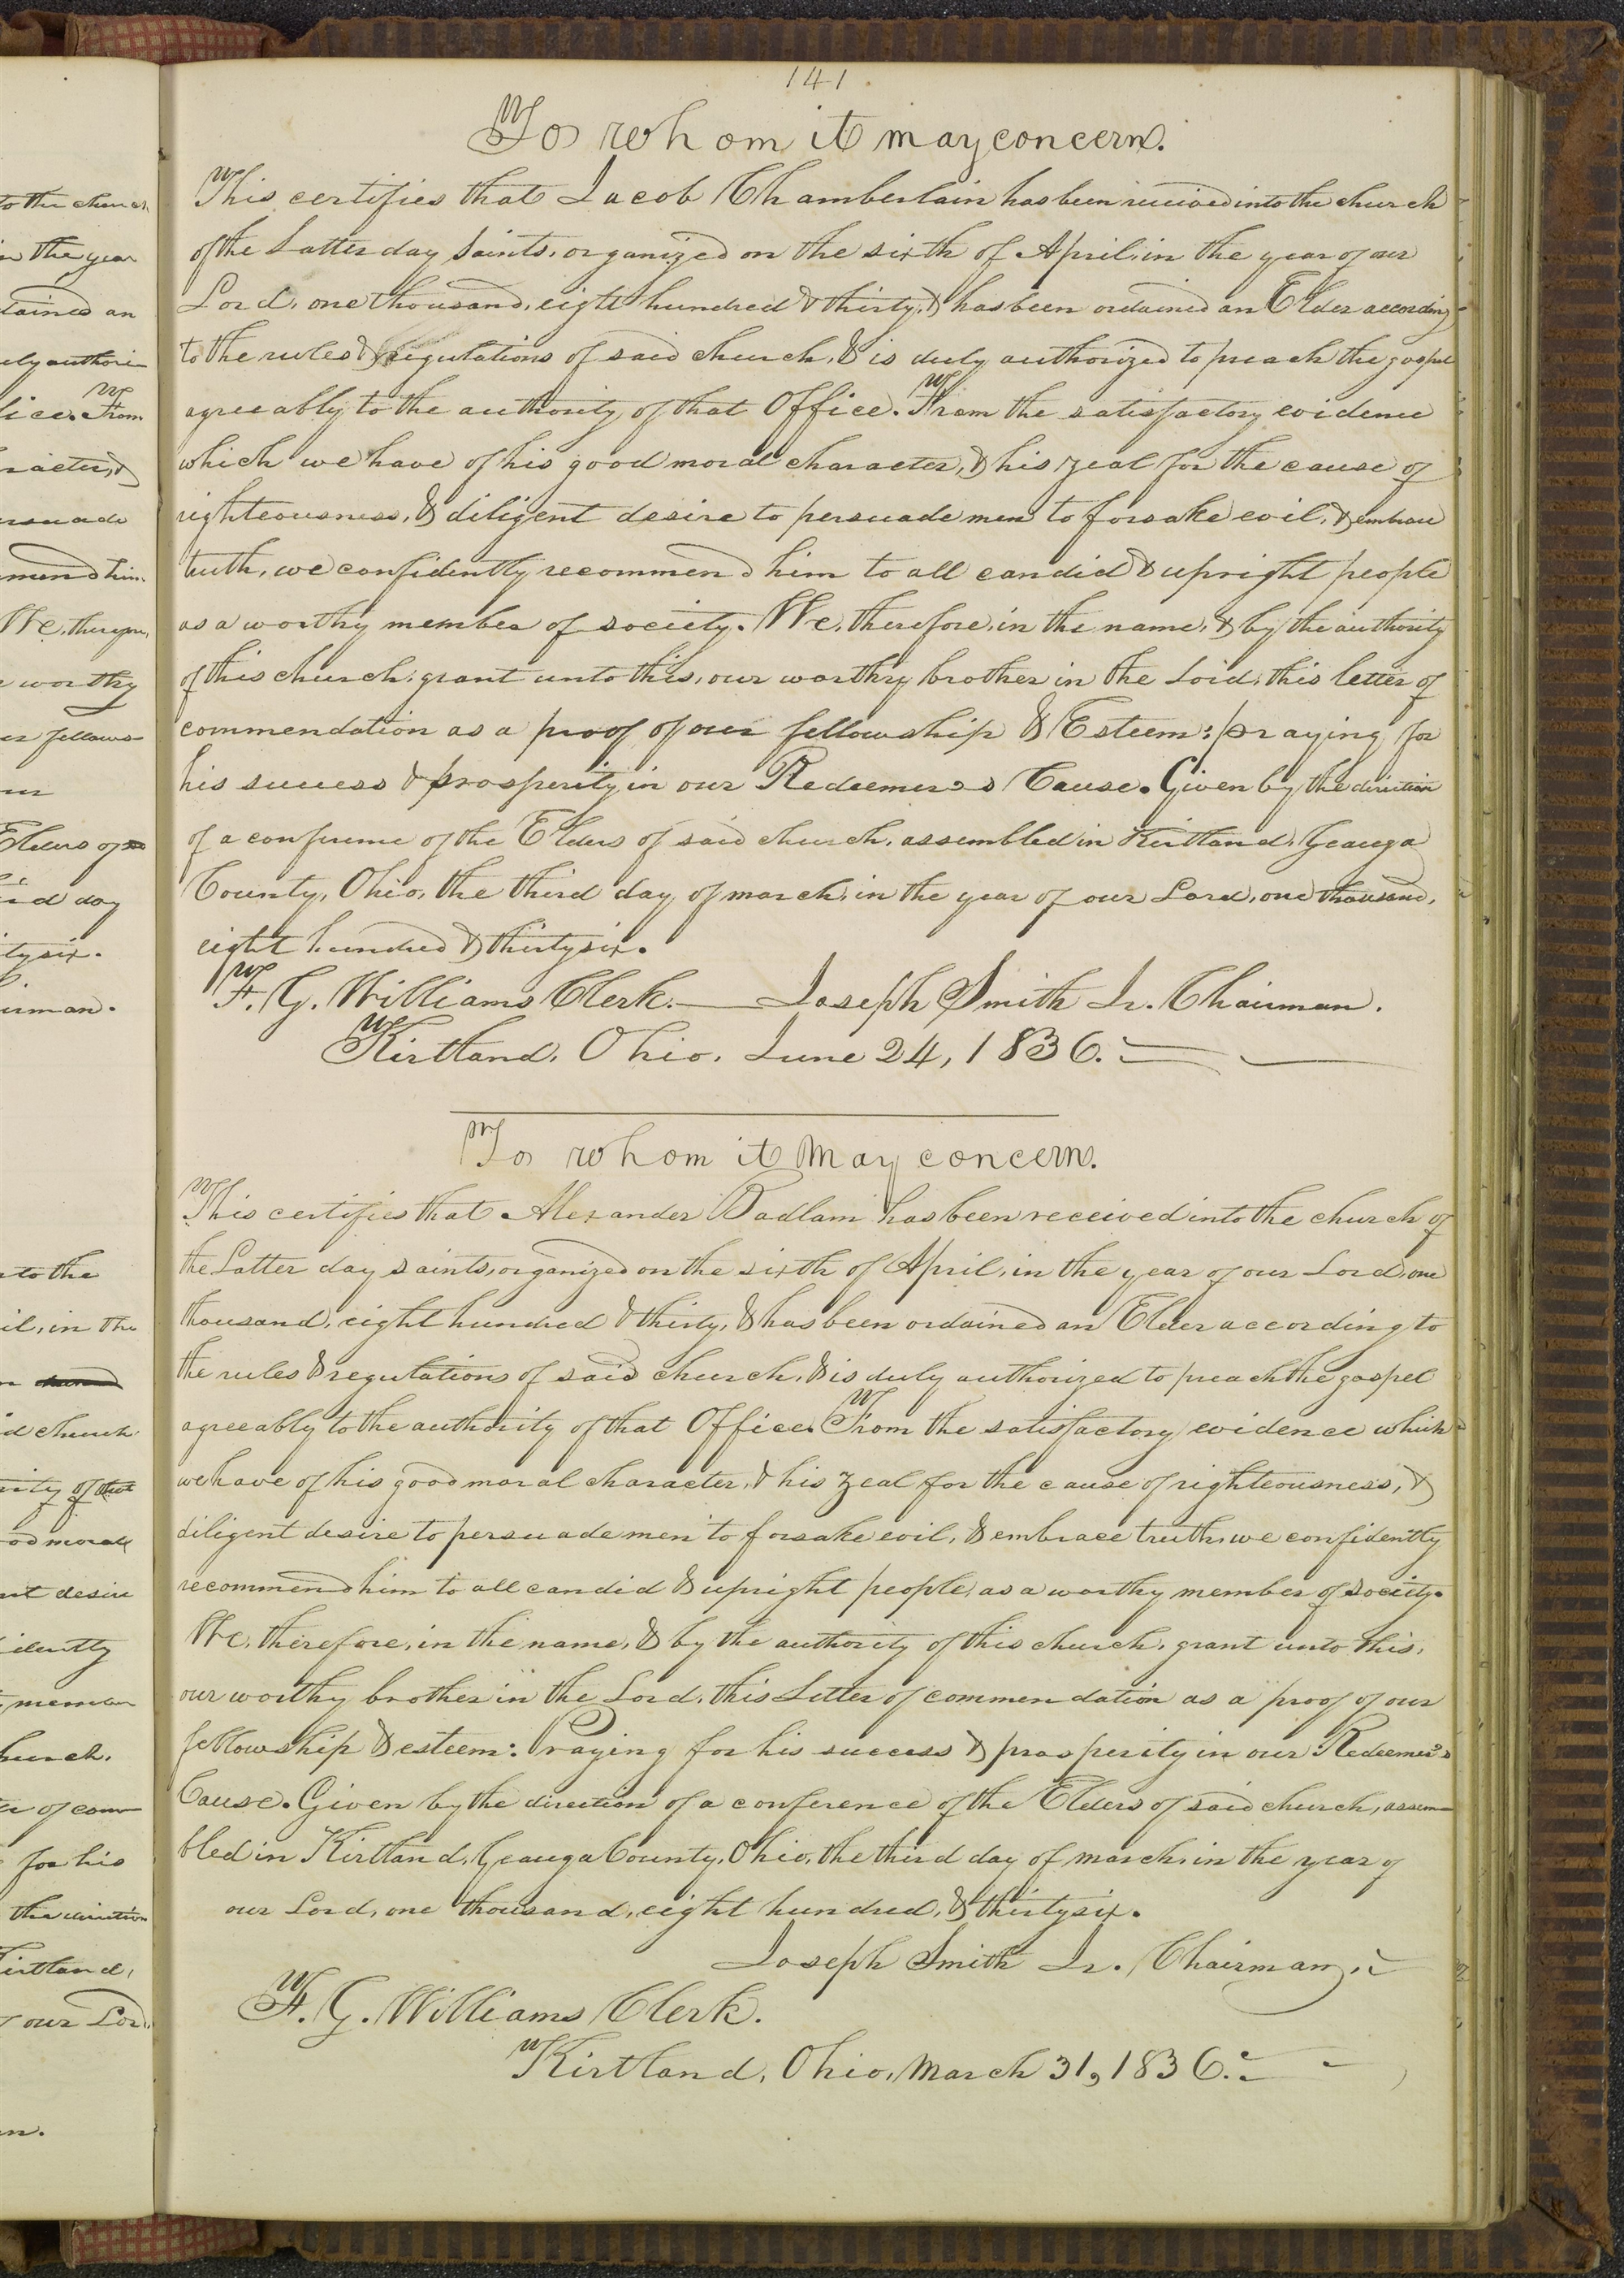 141
To whom it may concern.
This certifies that Jacob Chamberlain has been received into the church
of the Latter day Saints, organized on the sixth of April, in the year of our
Lord, one thousand, eight hundred & thirty, & has been ordained an Elder according
to the rules & regulations of said church, & is duly authorized to preach the gospel
agreeably to the authority of that Office. From the satisfactory evidence
which we have of his good moral character, & his zeal for the cause of
righteousness, & diligent desire to persuade men to forsake evil, & embrace
truth, we confidently recommend him to all candid & upright people
as a worthy member of society. We, therefore, in the name, & by the authority
of this church, grant unto this, our worthy brother in the Lord, this letter of
commendation as a proof of our fellowship & Esteem: praying for
his success & prosperity in our Redeemer's Cause. Given by the direction
of a confrence of the Elders of said church, assembled in Kirtland, Geauga
County, Ohio, the third day of march, in the year of our Lord, one thousand,
eight hundred & thirty six.
F. G. Williams Clerk. — Joseph Smith Jr. Chairman.
Kirtland, Ohio, June 24, 1836.
To whom it may concern.
This certifies that Alexander Badlam has been received into the church of
the Latter day saints, organized on the sixth of April, in the year of our Lord, one
thousand, eight hundred & thirty, & has been ordained an Elder according to
the rules & regulations of said church, & is duly authorized to preach the gospel
agreeably to the authority of that Office. From the satisfactory evidence which
we have of his good moral character, & his zeal for the cause of righteousness, &
diligent desire to persuade men to forsake evil, & embrace truth, we confidently
recommend him to all candid & upright people, as a worthy member of society.
We, therefore, in the name, & by the authority of this church, grant unto this,
our worthy brother in the Lord, this Letter of commendation as a proof of our
fellowship & esteem: Praying for his success & prosperity in our Redeemer's
Cause. Given by the direction of a conference of the Elders of said church, assem-
bled in Kirtland, Geauga County, Ohio, the third day of march, in the year of
our Lord, one thousand, eight hundred, & thirty six.
Joseph Smith Jr. Chairman.
F. G. Williams Clerk.
Kirtland, Ohio, March 31, 1836.